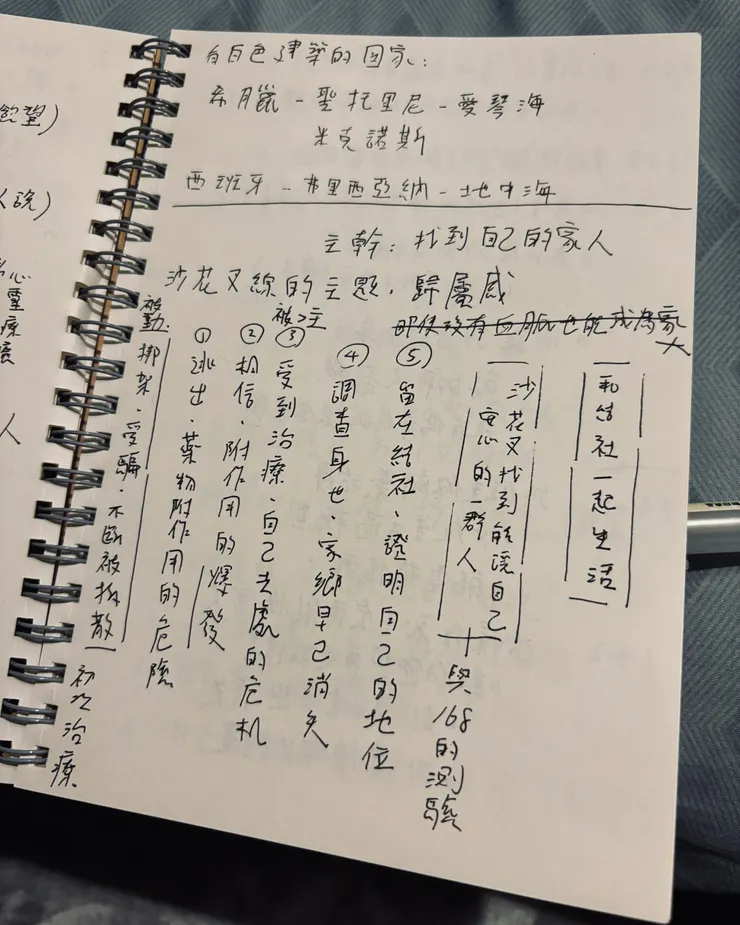 慾望)
人說)
心靈療癒
人
有白色建築的国家:
希腊-聖托里尼-愛琴海
米克諾斯
西班牙-弗里西亞納-地中海
主幹:找到自己的家人
沙花叉線的主題.歸屬感
即使沒有血脈也能成為家人
被動:綁架、受騙、不斷被拆散
初次治療
①逃出、藥物附作用的危險
②相信、附作用的爆發
被>主
③受到治療、自己去處的危机
④調查身世、家鄉早已消失
⑤留在結社、證明自己的地位
沙花叉找到能讓自己
安心的群人
與168的測驗
和結社一起生活